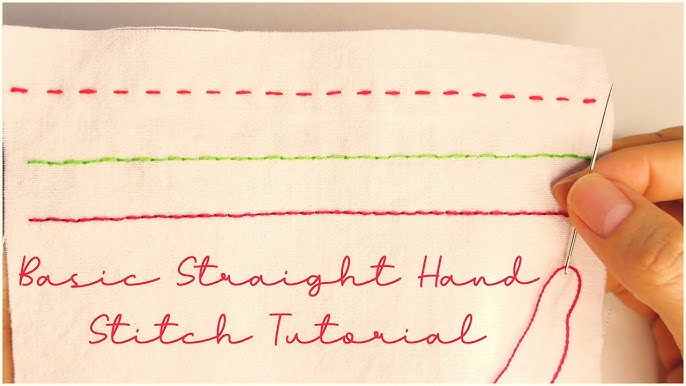 Basic Straight Hand
Stitch Tutorial